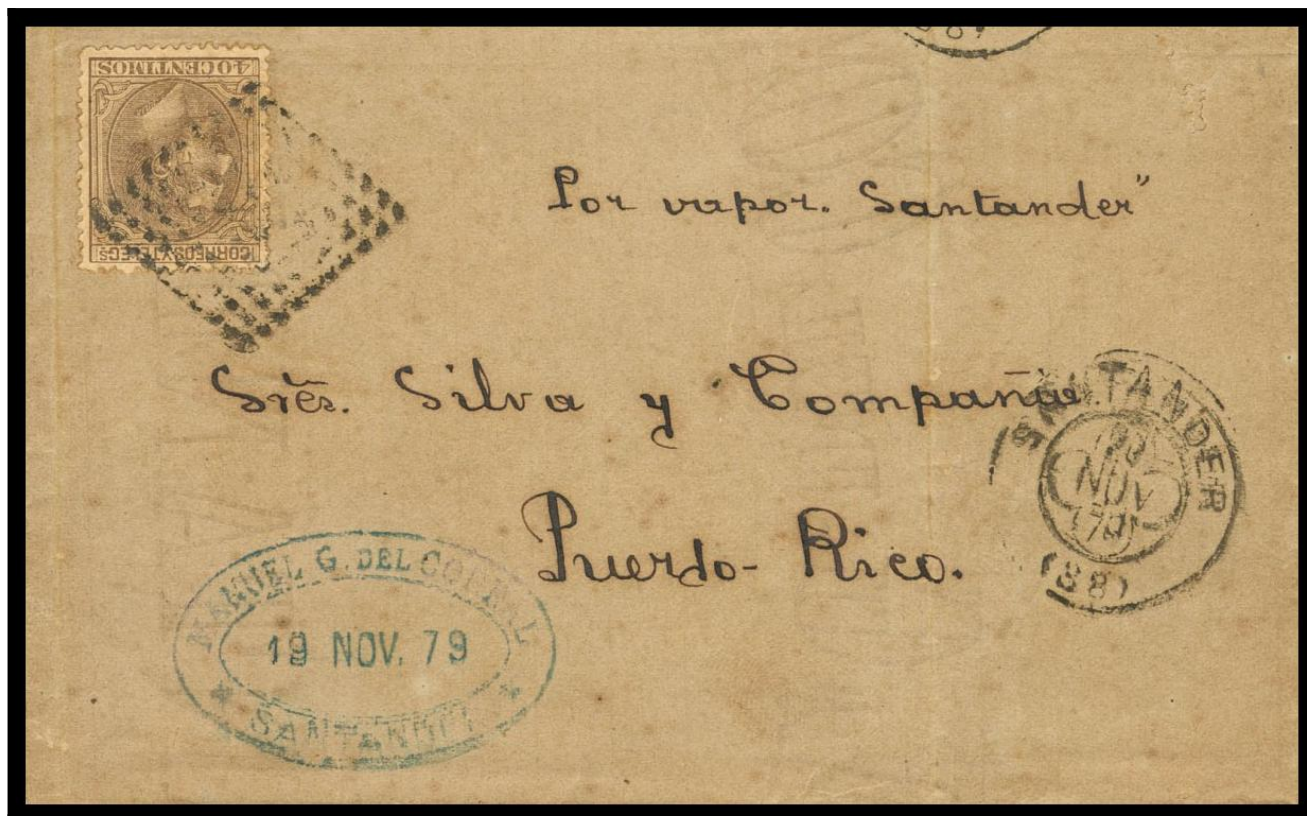 40 CENTIMOS
CORREOS Y TELEGS
Por vapor. Santander"
Srēs. Silva y Compañia.
Puerto-Rico.
SANTANDER
NOV
79
(88)
MANUEL G. DEL CORRAL
19 NOV. 79
SANTANDER